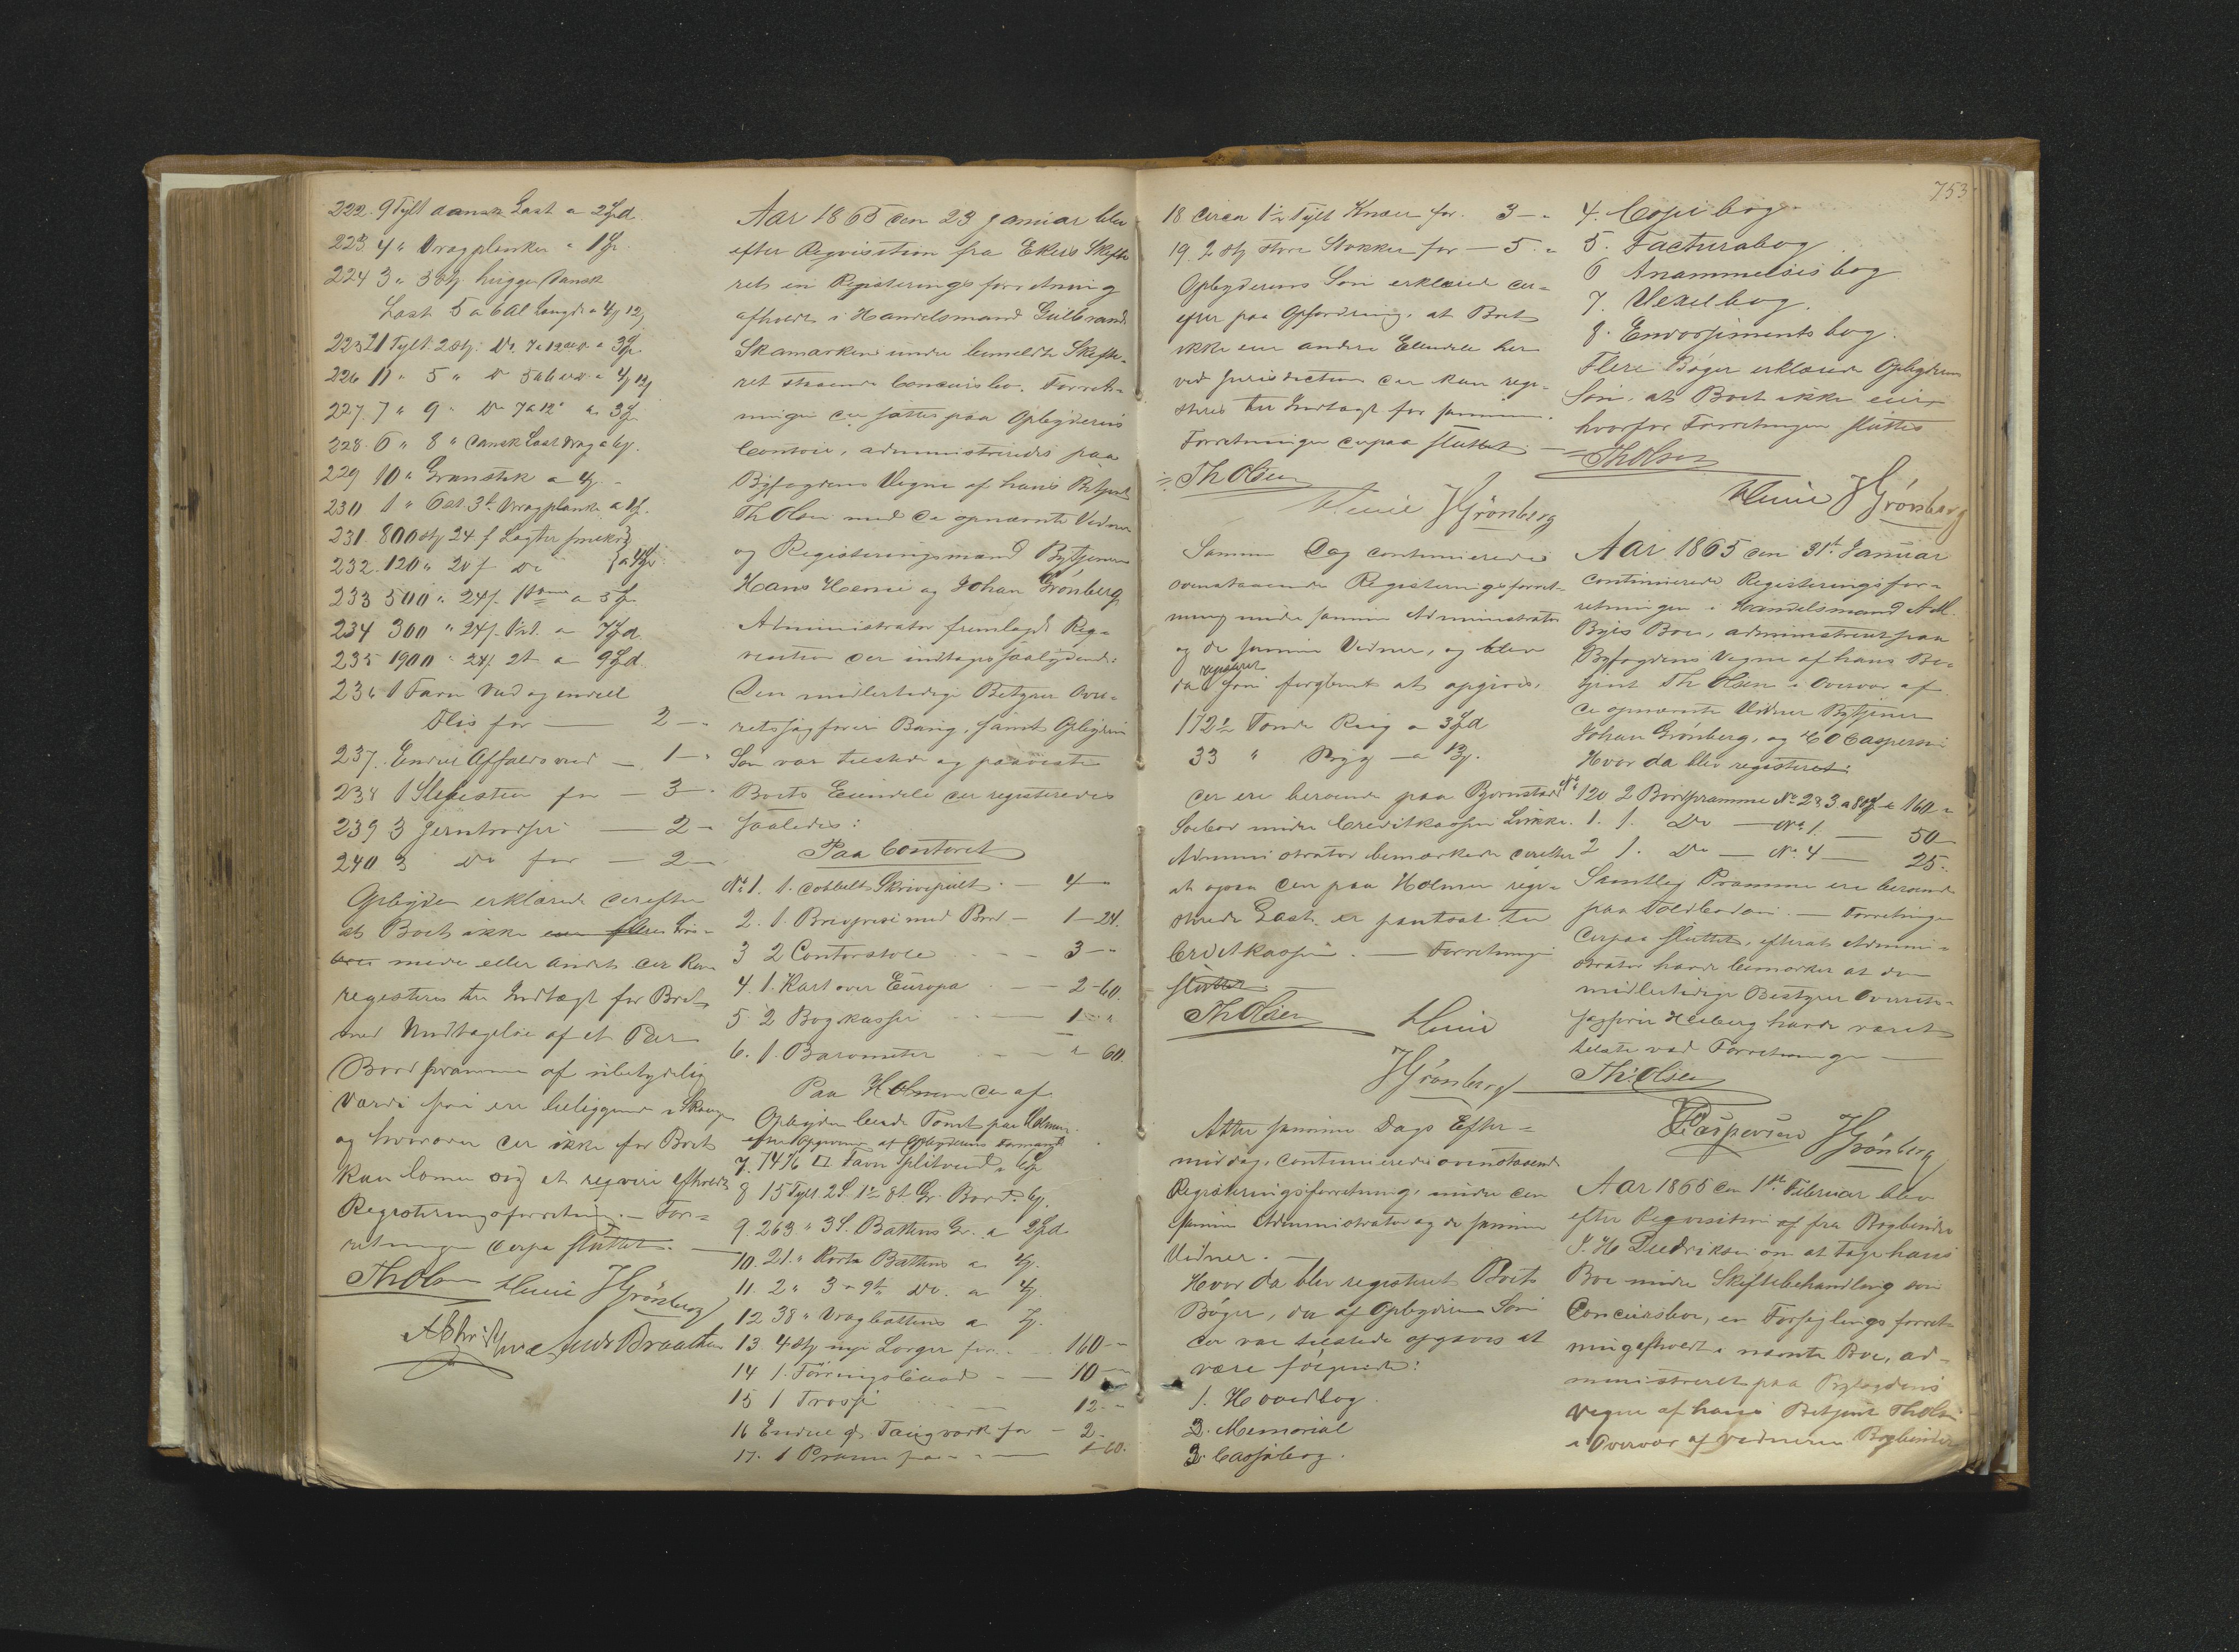 222. 9 Tylt dansk Last a 2
223 4 " Vragplanker a 1
224 3 " 3 stk. huggen dansk
Last 5 a 6 Al Længde a
225 21 Tylt. 2 stk. Do. 7 a 12 a 3
226 11 " 5 " Do 5 a 6
227. 7 " 9 " Do 7 a 12 a 3
228. 6 " 8 " dansk Last Vrag a
229 10 " Granstok a
230 1 " Vragplanke a
231. 800 stk 24 f Lægter
232. 120 " 20 f Do
233 500 " 24 f. a 5
234 300 " 24 f. a 7
235 1900 " 24 f. a 9
236 1 Favn Ved og endeel
Flis for — 2 — "
237. Endeel Affaldsved — 1 — "
238 1 Slibesteen for — 3 — "
239 3 Jerntrosser — 2 —
240 3 Do for — 2 —
Opbyder erklærede derefter
at Boet ikke eier flere
mere eller Andet der kan
registeres til Indtægt for Boet
med Undtagelse af et Par
Bordpramme af ubetydelig
Værdi som ere beliggende i
og hvorover der ikke for Boet
kan lønne sig at reqvirere afholdt
Registeringsforretning. — For=
retningen derpaa sluttet. —
Th Olsen Henie J Grönberg
Braathen
Aar 1865 den 23 Januar blev
efter Reqvisition fra Ekers Skifte
ret en Registeringsforretning
afholdt i Handelsmand Gulbrand
Skamarkens under bemeldte Skifte-
ret staaende Concursbo. Forret-
ningen der sattes paa Opbyderens
Contoir, administreredes paa
Byfogdens Vegne af hans Betjent
Th Olsen med de opnævnte Vidner
og Registeringsmænd Bytjenerne
Hans Henie og Johan Grönberg
Administrator fremlagde Reqvi-
sition der indtages saalydende:
Den midlertidige Bestyrer Over-
retssagfører Bang, samt Opbyderens
Søn var tilstede og paaviste
Boets Eiendele der registeredes
saaledes:
Paa Contoret
No 1. 1. dobbelt Skrivepult. — 4 —
2. 1. Brevpresse med Bord — 1 — 24.
3 2 Contorstole — 3 — "
4. 1. Kart over Europa — 2 - 60.
5 2 Bogkasser — 1 - "
6. 1. Barometer — " 60.
Paa Holmen der af
Opbyder leiede Tomt paa Holmen
efter Opgivende af Opbyderens Formand
7. 74 1/6 □ Favn Splitved a
8 15 Tylt 2 S. Gr. Bord a
9. 263 " 3 S. Battens Gr. a 2
10. 21. " Korte Battens a
11. 2 " 3 a 9 Do. a
12 38 " Vragbattens a
13. 4 stk nye Lorger for — 160 - "
14 1. Førringsbaad — 10 - "
15 1 Trosse — 12. - "
16 Endeel gl. Taugværk for — 2 -
17. 1 Pram for — 60.
753
18 Circa 1 1/2 Tylt Knæer for. 3 — "
19. 2 stk store Stokker for — 5 - "
Opbyderens Søn erklærede der=
efter paa Opfordring, at Boet
ikke eier andre Eiendele her
ved Jurisdiction der kan regi-
steres til Indtægt for samme.
Forretningen derpaa sluttet —
Th Olsen
Henie J Grönberg
Samme Dag continueredes
ovenstaaende Registeringsforret-
ning under samme Administrator
og de samme Vidner, og blev
registeret
da som forglemt at opgives,
172 1/2 Tønde Rug a 3
33 " Byg — a
der ere beroende paa Bjørnstads
Søebod under Creditkassens Lukke.
Administrator bemærkede derefter
at ogsaa den paa Holmen regi-
strerede Last er pantsat til
Creditkassen. — Forretningen
sluttet.
Th Olsen Henie
J Grönberg
Atter samme Dags Efter=
middag, continueredes ovenstaaende
Registeringsforretning, under den
samme Administrator og de samme
Vidner. —
Hvor da blev registeret Boets
Bøger, der af Opbyderens Søn
der var tilstede opgaves at
være følgende:
1. Hovedbog.
2. Memorial
3. Cassabog.
4. Copibog.
5. Facturabog
6 Anammelsesbog
7. Vexelbog.
8. Envoijementsbog.
Flere Bøger erklærede Opbyderens
Søn, at Boet ikke eier
hvorfor Forretningen sluttes
Th Olsen
Henie J Grönberg
Aar 1865 den 31t Januar
continueredes Registeringsfor-
retningen i Handelsmand A M.
Byes Boe, administreret paa
Byfogdens Vegne af hans Be-
tjent Th Olsen i Overvær af
de opnævnte Vidner Bytjener
Johan Grönberg, og C O Caspersen
Hvor da blev registeret:
No 120 2 Bordpramme No 2 & 3 a 80 160 -
1. 1. Do — No 1. — 50 -
2 1. Do — No. 4 — 25 -
Samtlige Pramme ere beroende
paa Toldboden. — Forretningen
derpaa sluttet, efterat Admini-
strator havde bemærket at den
midlertidige Bestyrer Overrets-
sagfører Heiberg havde været
tilstede ved Forretningen —
Th. Olsen
Caspersen J Grönberg
Aar 1865 den 1ste Februar blev
efter Reqvisition af fra Bogbinder
J. H Diedriksen om at tage hans
Boe under Skiftebehandling som
Concursboe, en Forseglingsforret-
ning afholdt i nævnte Boe, ad-
ministreret paa Byfogdens
Vegne af hans Betjent Th Olsen
i Overvær af Vidnerne Bogbinder